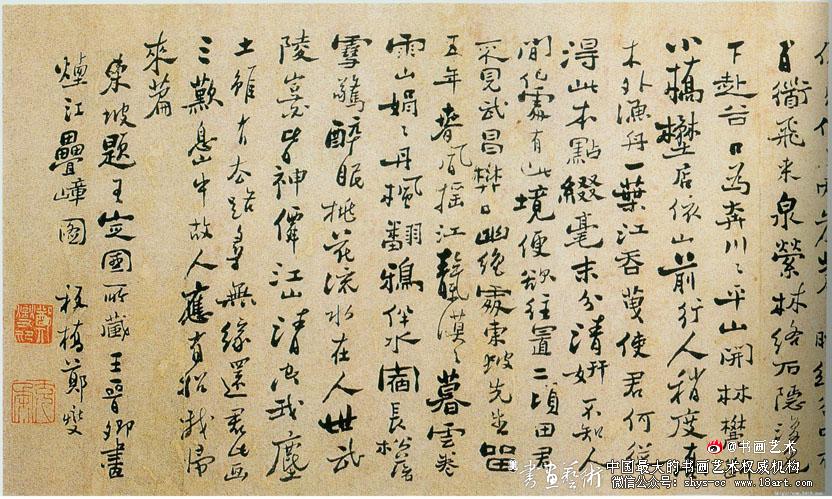 百衟飛来泉縈林絡石隱復見
下赴谷口為奔川〻平山開林麓
小橋壄店依山前行人稍度喬
木外漁舟一葉江吞天使君何從
得此本點綴毫末分清妍不知人
間何處有此境便欲往置二頃田君
不見武昌樊口幽絶處東坡先生留
五年春風摇江天漠〻暮雲卷
雨山娟〻丹楓翻鴉伴水宿長松落
雪驚醉眠桃花流水在人世武
陵豈皆神僊江山清空我塵
土雖有去路尋無緣還君此画
三歎息山中故人應有招我歸
來篇
東坡題王定國所藏王晉卿畫
煙江疊嶂圖 板橋鄭燮
@书画艺术
書畫藝術 中国最大的书画艺术权威机构
微信公众号：shys-cc www.18art.com